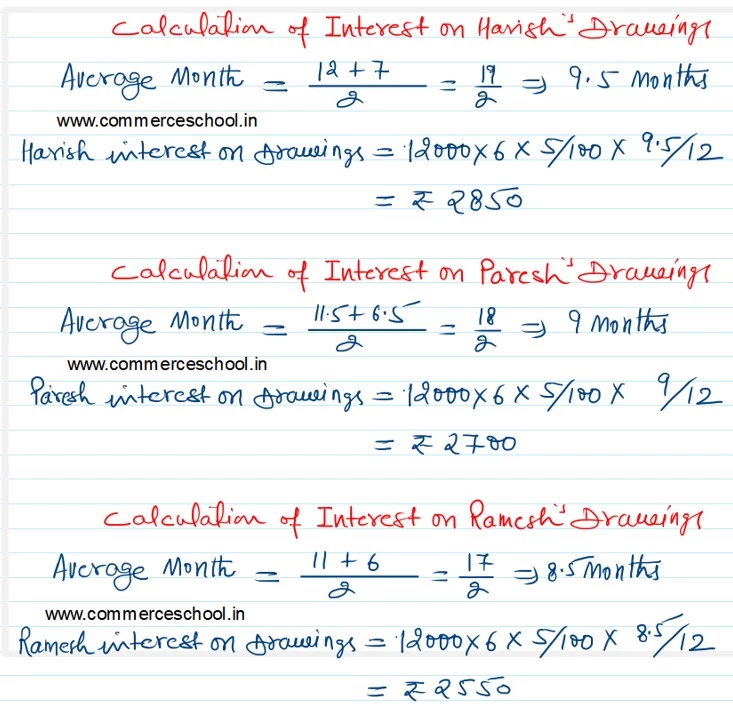 Calculation of Interest on Harish's Drawings
Average Month = 12 + 7 / 2 = 19 / 2 ⇒ 9.5 Months
www.commerceschool.in
Harish interest on drawings = 12000 × 6 × 5/100 × 9.5/12
= ₹ 2850
Calculation of Interest on Paresh's Drawings
Average Month = 11.5 + 6.5 / 2 = 18 / 2 ⇒ 9 Months
www.commerceschool.in
Paresh interest on drawings = 12000 × 6 × 5/100 × 9/12
= ₹ 2700
Calculation of Interest on Ramesh's Drawings
Average Month = 11 + 6 / 2 = 17 / 2 ⇒ 8.5 Months
www.commerceschool.in
Ramesh interest on drawings = 12000 × 6 × 5/100 × 8.5/12
= ₹ 2550